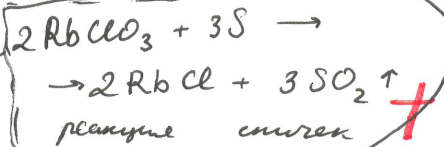 2RbClO₃ + 3S →
→ 2RbCl + 3SO₂↑
реакция спичек